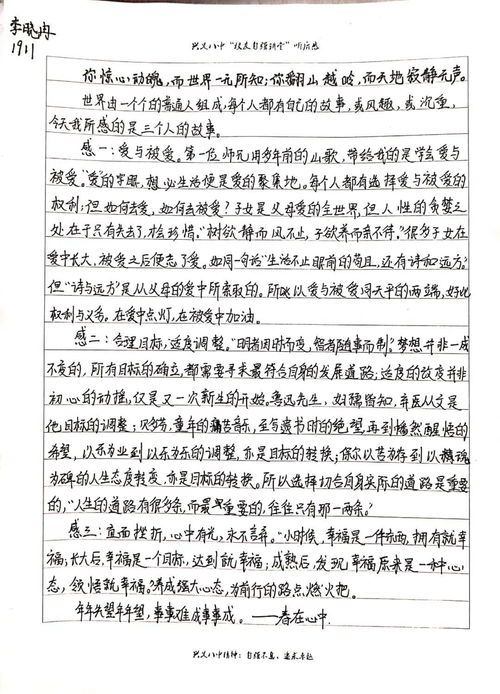 李晓冉
1911
兴义八中“校友自强讲堂”听后感
你惊心动魄，而世界一无所知；你翻山越岭，而天地寂静无声。
世界由一个个的普通人组成，每个人都有自己的故事，或风趣，或沉重，
今天我所感的是三个人的故事。
感一：爱与被爱。第一位师兄用多年前的山歌，带给我的是学会爱与
被爱。“爱”的字眼，想必生活便是爱的聚集地。每个人都有选择爱与被爱的
权利；但如何去爱，如何去被爱？子女是父母爱的全世界，但人性的贪婪之
处在于只有失去了，才会珍惜。“树欲静而风不止，子欲养而亲不待。”很多子女在
爱中长大，被爱之后便忘了爱。如同一句话“生活不止眼前的苟且，还有诗和远方。”
但“诗与远方”是从父母的爱中所索取的。所以爱与被爱同天平的两端，好比
权利与义务。在爱中点灯，在被爱中加油。
感二：合理目标，适度调整。“明者因时而变，智者随事而制。”梦想并非一成
不变的，所有目标的确立，都需要寻来最符合自身的发展道路；适度的改变并非
初心的动摇，仅是又一次新生的开始。鲁迅先生，妇孺皆知，弃医从文是
他目标的调整；贝多芬，童年的痛苦音乐，至写遗书时的绝望，再到幡然醒悟的
希望，以乐为业到以乐为乐的调整，亦是目标的转换；你尔以苦为存到以
为碎的人生态度转变，亦是目标的转换。所以选择切合自身实际的道路是重要
的，“人生的道路有很多条，而最重要的，往往只有那一两条。”
感三：直面挫折，心中有光，永不言弃。“小时候，幸福是一件东西，拥有就幸
福；长大后，幸福是一个目标，达到就幸福；成熟后，发现幸福原来是一种心
态，领悟就幸福。”养成强大心态，为前行的路点燃火把。
年年失望年年望，事事难成事事成。——春在心中
兴义八中精神：自强不息，追求卓越